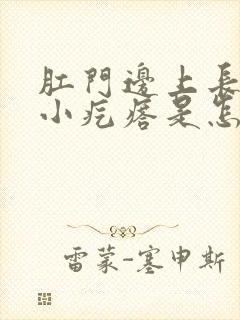 肛門邊上長
小疙瘩是怎
雷蒙-塞申斯